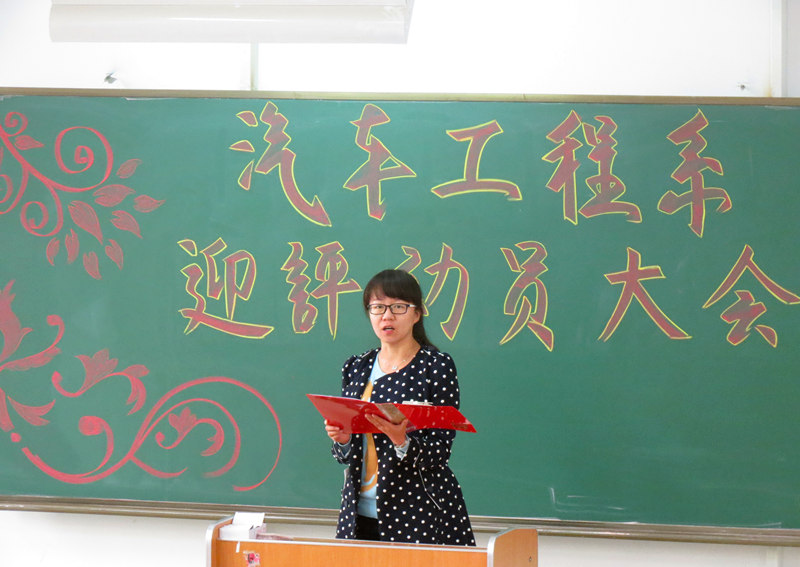 汽车工程系
迎評动员大会